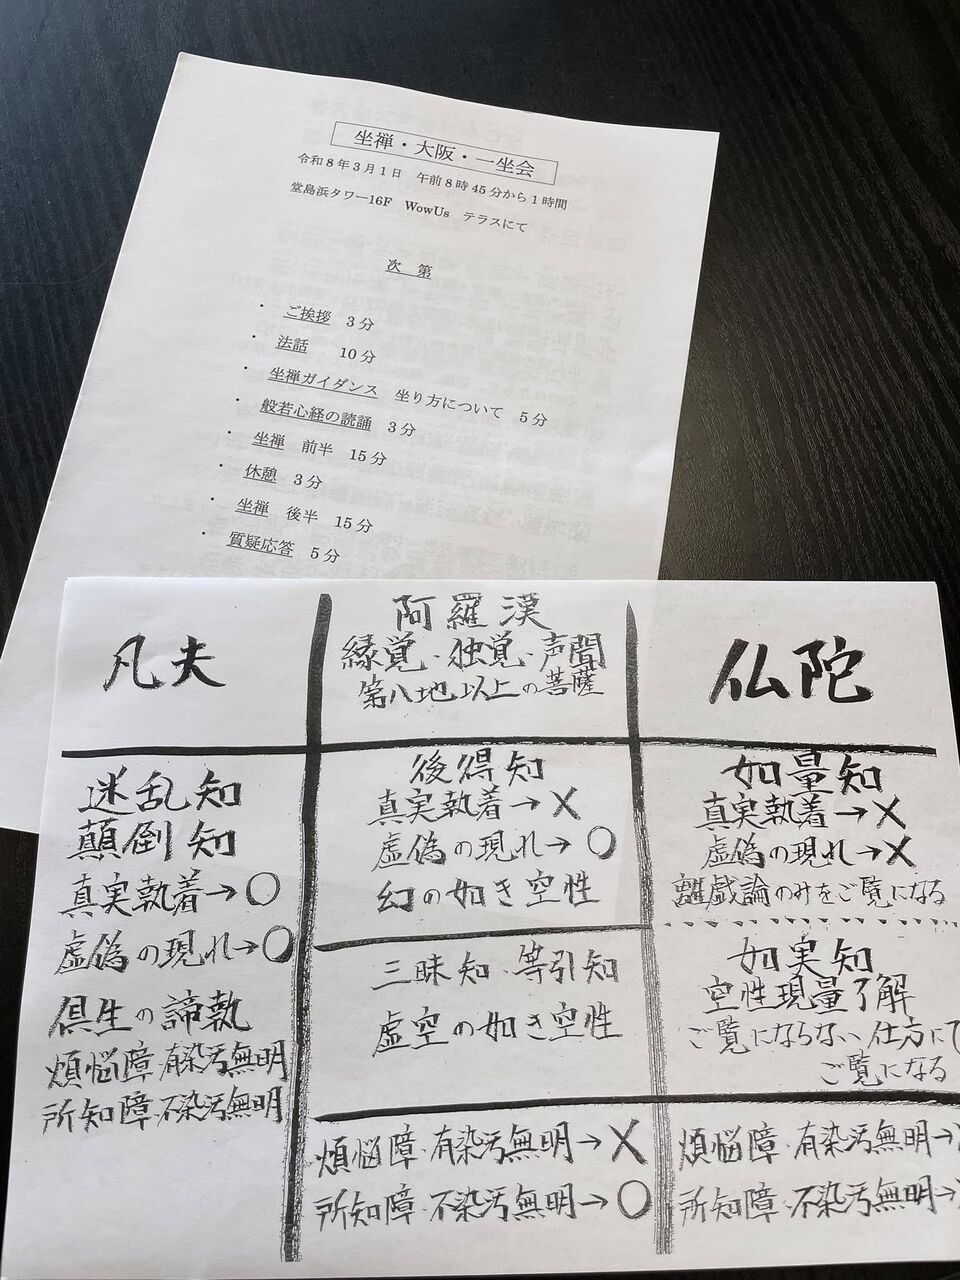 坐禅・大阪・一坐会
令和8年3月1日　午前8時45分から1時間
堂島浜タワー16F　WowUs　テラスにて
次　第
・ご挨拶　3分
・法話　10分
・坐禅ガイダンス　坐り方について　5分
・般若心経の読誦　3分
・坐禅　前半　15分
・休憩　3分
・坐禅　後半　15分
・質疑応答　5分
凡夫
迷乱知
顛倒知
真実執着→○
虚偽の現れ→○
倶生の諦執
煩悩障・有染汚無明
所知障・不染汚無明
阿羅漢
縁覚・独覚・声聞
第八地以上の菩薩
後得知
真実執着→X
虚偽の現れ→○
幻の如き空性
三昧知・等引知
虚空の如き空性
煩悩障・有染汚無明→X
所知障・不染汚無明→○
仏陀
如量知
真実執着→X
虚偽の現れ→X
離戯論のみをご覧になる
如実知
空性現量了解
ご覧にならない仕方にて
ご覧になる
煩悩障・有染汚無明→
所知障・不染汚無明→